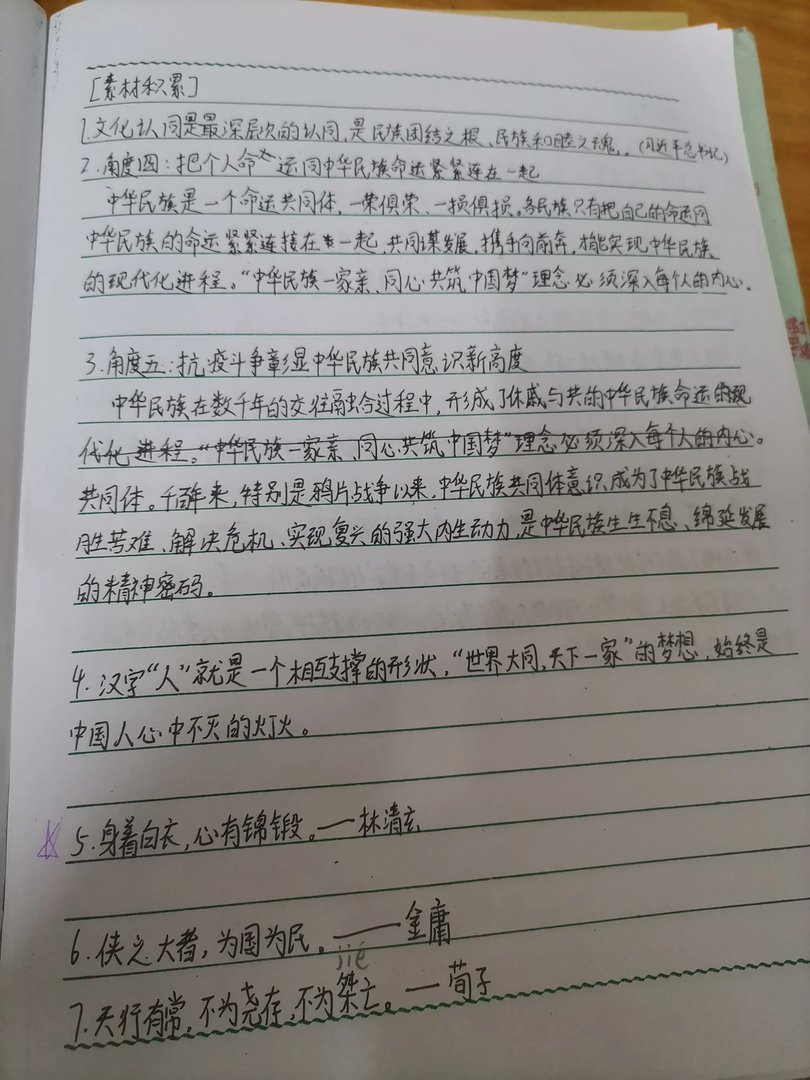 [素材积累]
1.文化认同是最深层次的认同,是民族团结之根、民族和睦之魂。(习近平总书记)
2.角度四:把个人命运同中华民族命运紧紧连在一起
中华民族是一个命运共同体,一荣俱荣、一损俱损。各民族只有把自己的命运同
中华民族的命运紧紧连接在一起,共同谋发展,携手向前奔,才能实现中华民族
的现代化进程。“中华民族一家亲、同心共筑中国梦”理念必须深入每个人的内心。
3.角度五:抗疫斗争彰显中华民族共同意识新高度
中华民族在数千年的交往融合过程中,形成了休戚与共的中华民族命运的现
代化进程。“中华民族一家亲、同心共筑中国梦”理念必须深入每个人的内心。
共同体。千百年来,特别是鸦片战争以来,中华民族共同体意识成为了中华民族战
胜苦难、解决危机、实现复兴的强大内生动力,是中华民族生生不息、绵延发展
的精神密码。
4.汉字“人”就是一个相互支撑的形状,“世界大同,天下一家”的梦想,始终是
中国人心中不灭的灯火。
5.身着白衣,心有锦锻。——林清玄
6.侠之大者,为国为民。——金庸
jié
7.天行有常,不为尧存,不为桀亡。——荀子